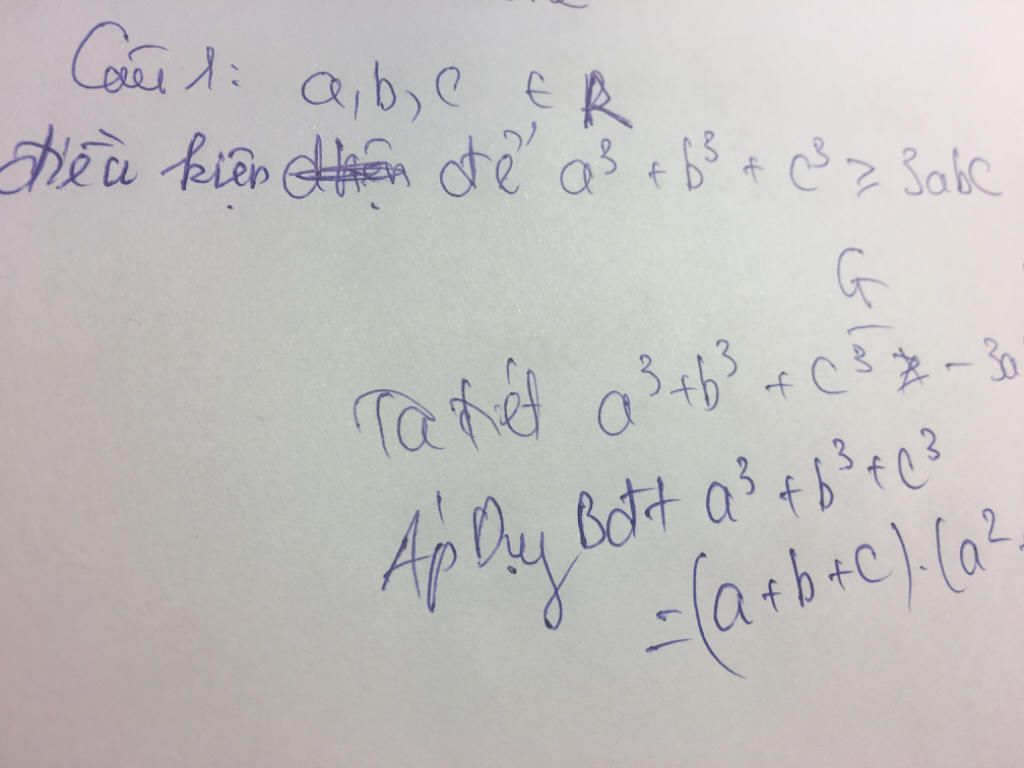 Câu 1: a, b, c ∈ R
điều kiện để a³ + b³ + c³ ≥ 3abc
G
Ta xét a³ + b³ + c³ - 3a
Áp Dụg Bđt a³ + b³ + c³
= (a + b + c) . (a²